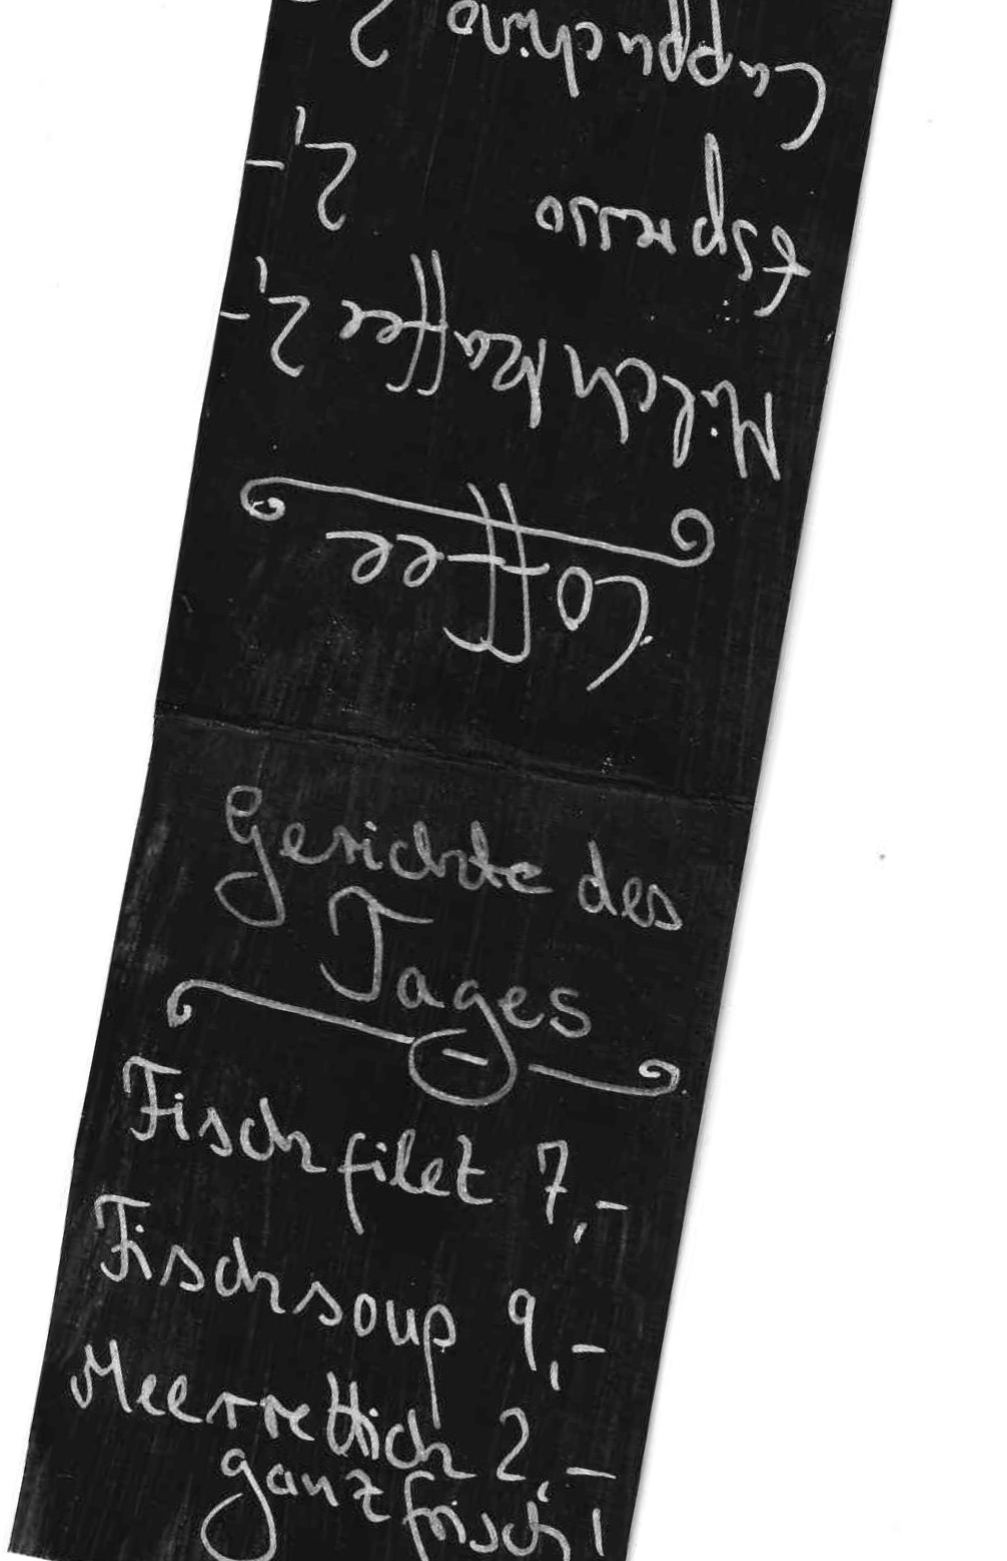 Coffee
Milchkaffee 2,-
Espresso 2,-
Cappuchino 2
Gerichte des
Tages
Fischfilet 7,-
Fischsoup 9,-
Meerrettich 2,-
ganz frisch!